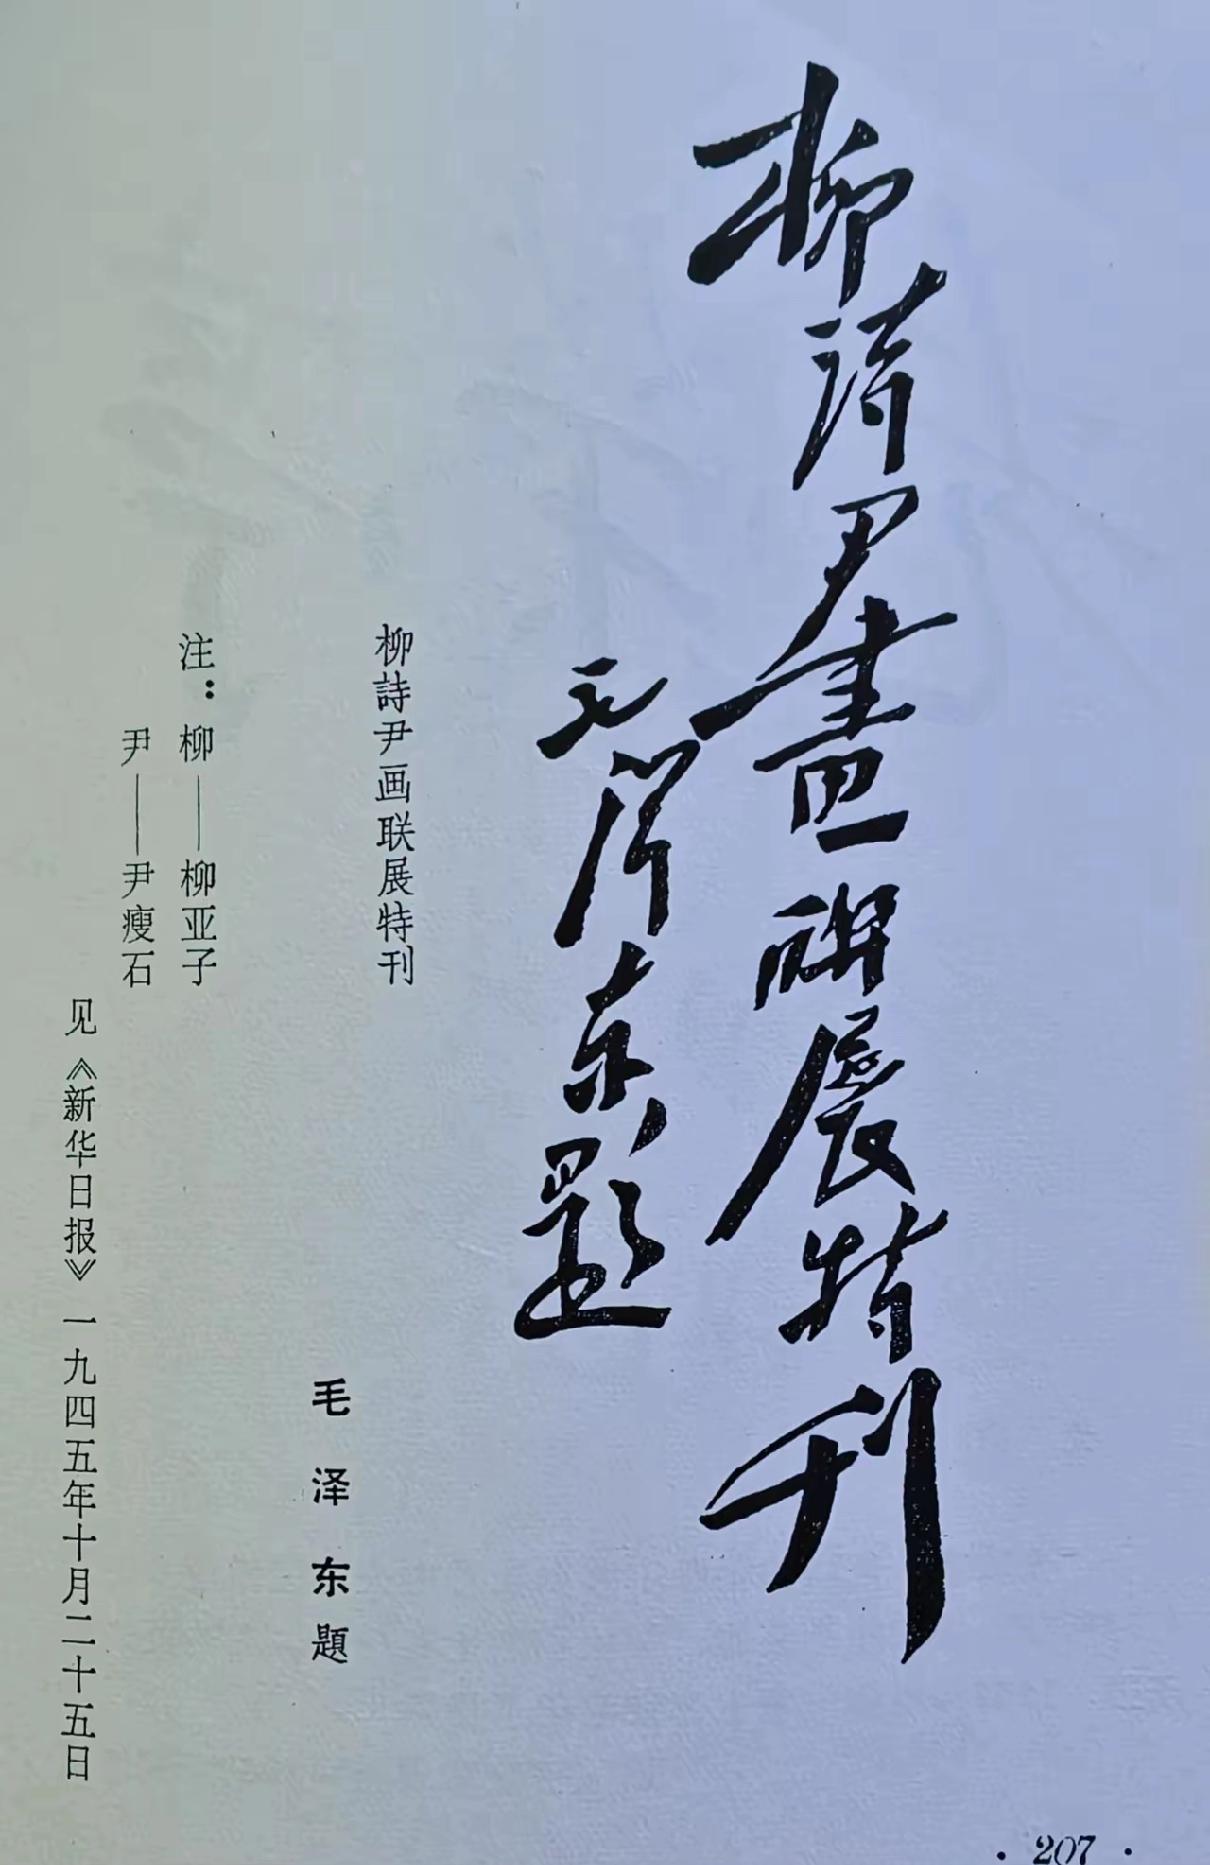 柳詩尹畫聯展特刊
毛澤东題
柳詩尹画联展特刊
毛泽东題
注：柳——柳亚子
尹——尹瘦石
见《新华日报》一九四五年十月二十五日
· 207 ·